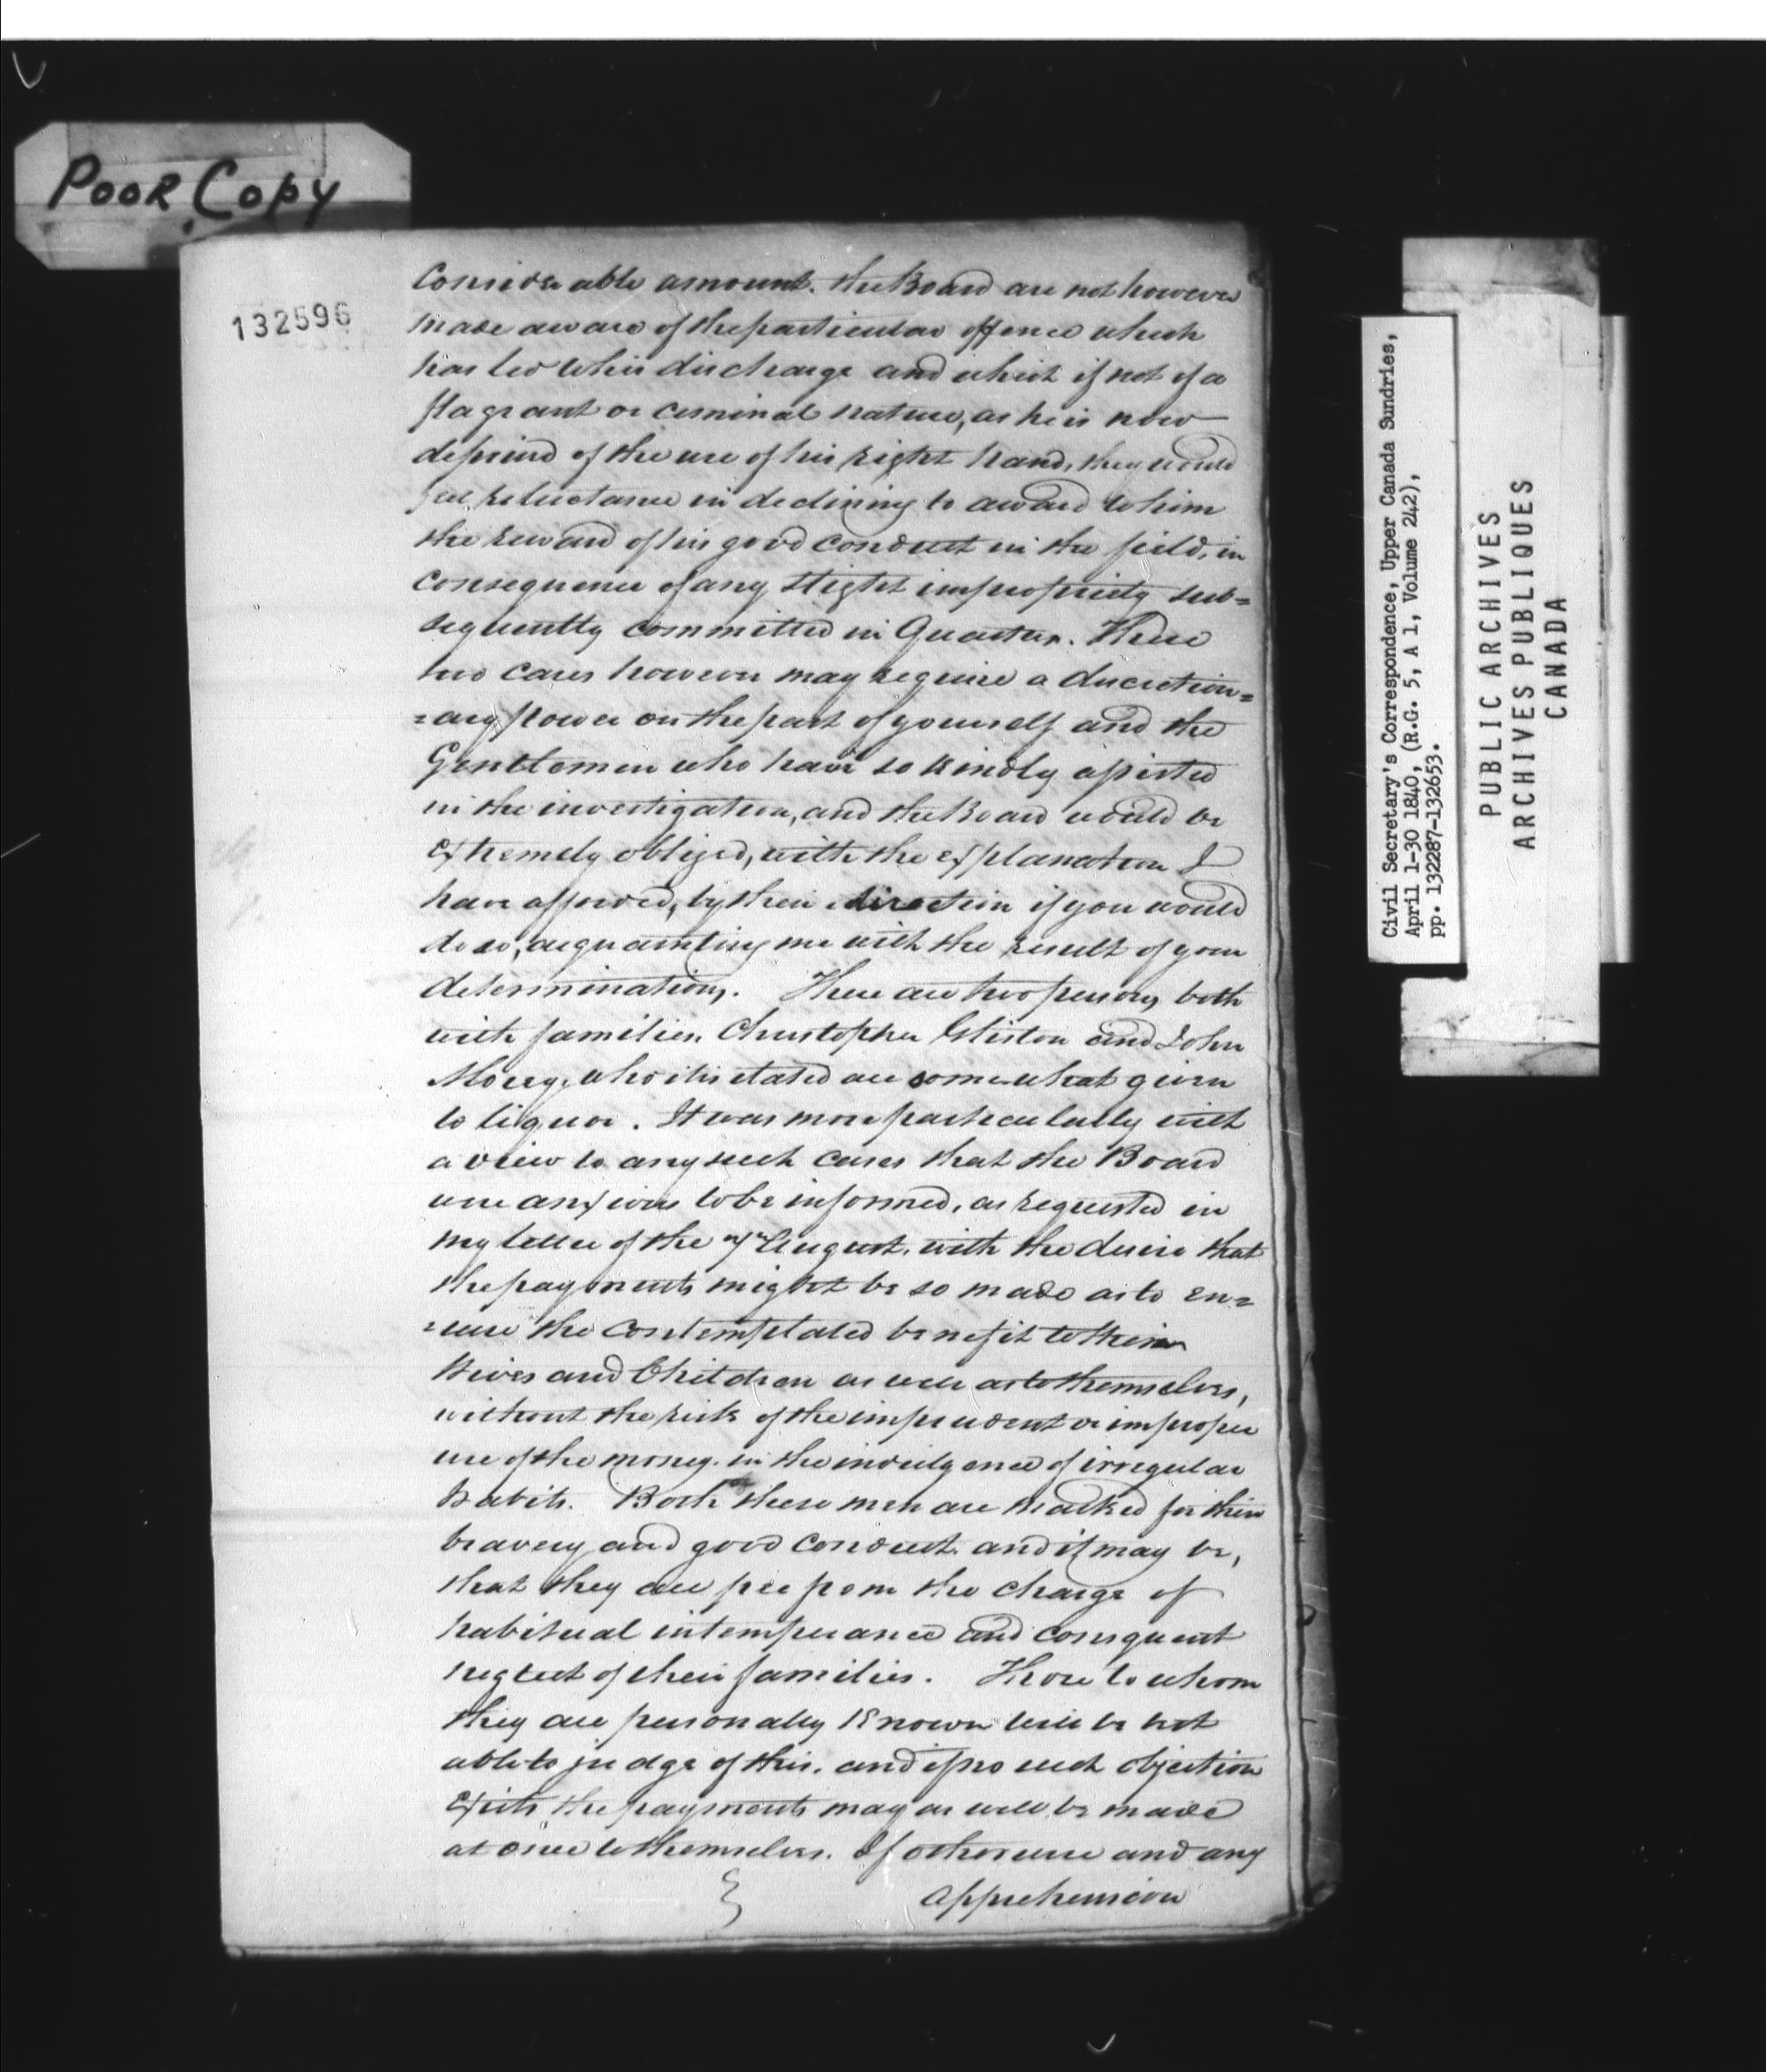 Poor Copy
132596
Considerable amount. the Board are not however
made aware of the particular offence which
has led to his discharge and which if not of a
flagrant or criminal nature, as he is now
deprived of the use of his right hand, they would
feel reluctance in declining to award to him
the reward of his good conduct in the field, in
consequence of any slight impropriety sub=
sequently committed in Quarters. These
two cases however may require a discretion=
=ary power on the part of yourself and the
Gentlemen who have so kindly assisted
in the investigation, and the Board would be
extremely obliged, with the explanation I
have afforded, by their direction if you would
do so, acquainting me with the result of your
determination. There are two persons, both
with families, Christopher and John
who it is stated are somewhat given
to liquor. It was more particularly with
a view to any such cases that the Board
were anxious to be informed, as requested in
my letter of the August, with the desire that
the payments might be so made as to en=
=sure the contemplated benefit to their
Wives and Children as well as to themselves,
without the risk of the imprudent or improper
use of the money in the indulgence of irregular
habits. Both these men are marked for their
bravery and good conduct and it may be,
that they are free from the charge of
habitual intemperance and consequent
neglect of their families. Those to whom
they are personally known will be best
able to judge of this, and if no such objection
exists the payments may as well be made
at once to themselves. If otherwise and any
apprehension
Civil Secretary's Correspondence, Upper Canada Sundries,
April 1-30 1840, (R.G. 5, A 1, Volume 242),
pp. 132287-132653.
PUBLIC ARCHIVES
ARCHIVES PUBLIQUES
CANADA